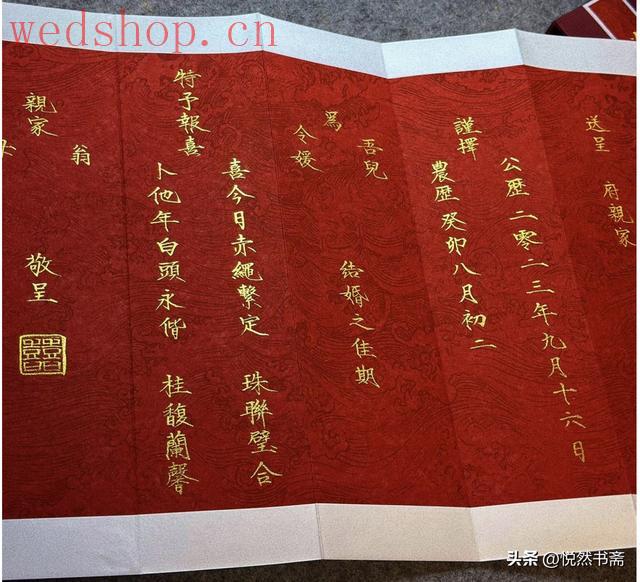 wedshop.cn
送呈
府親家
謹擇
公歷二零二三年九月十六日
農歷癸卯八月初二
爲
吾兒
令媛
結婚之佳期
喜今日赤繩繫定 珠聯璧合
卜他年白頭永偕 桂馥蘭馨
特予報喜
親家
翁
敬呈
囍
头条 @悦然书斋